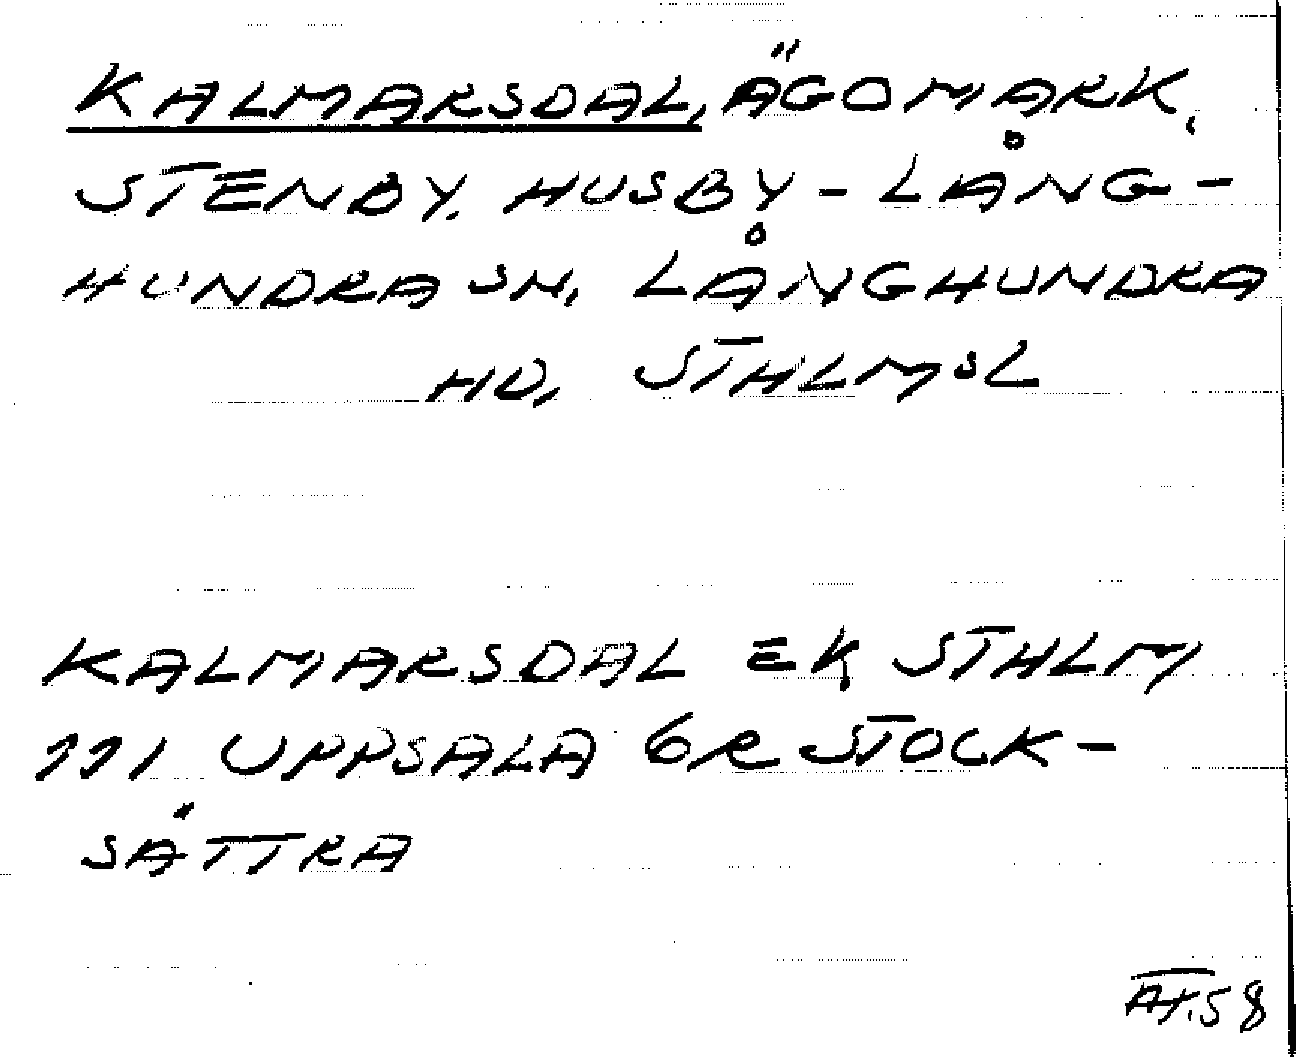 KALMARSDAL, ÄGOMARK,
STENBY. HUSBY-LÅNG-
HUNDRA SN, LÅNGHUNDRA
HD, STHLMSL
KALMARSDAL EK STHLM
111 UPPSALA 6R STOCK-
SÄTTRA
AT.58